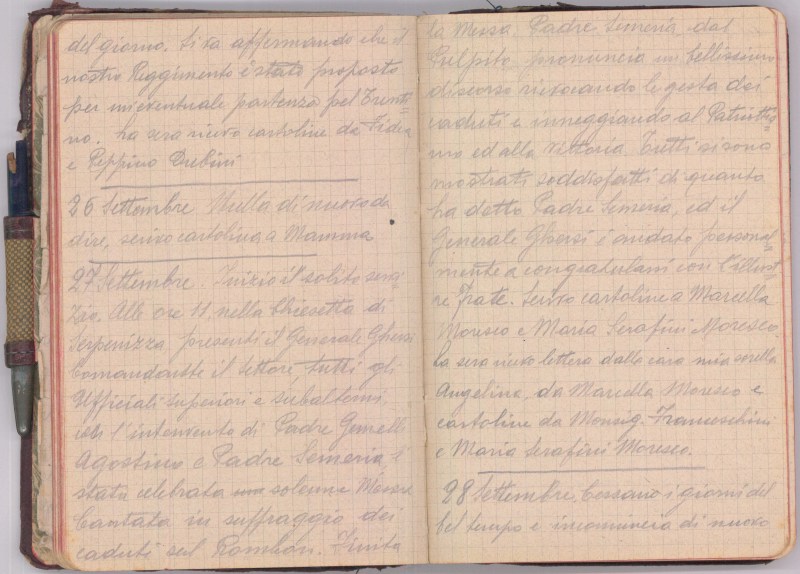 del giorno. Si va affermando che il
nostro Reggimento è stato proposto
per un'eventuale partenza pel Trenti
no. La sera ricevo cartoline da Fidea
e Peppino Dubini
26 Settembre. Nulla di nuovo da
dire, scrivo cartolina a Mamma
27 Settembre. Inizio il solito servi
zio. Alle ore 11 nella Chiesetta di
Serpenizza, presenti il Generale Ghersi
Comandante il settore, tutti gli
Ufficiali superiori e subalterni,
con l'intervento di Padre Gemelli
Agostino e Padre Semeria è
stata celebrata una solenne Messa
Cantata in suffragio dei
caduti sul Rombon. Finita
la Messa, Padre Semeria, dal
Pulpito, pronuncia un bellissimo
discorso rievocando le gesta dei
caduti e inneggiando al Patriotti=
smo ed alla Vittoria. Tutti si sono
mostrati soddisfatti di quanto
ha detto Padre Semeria, ed il
Generale Ghersi è andato personal=
mente a congratularsi con l'illust
re frate. Scrivo cartoline a Marcella
Moresco e Maria Serafini Moresco.
La sera ricevo lettera dalla cara mia sorella
Angelina, da Marcella Moresco e
cartoline da Monsig. Franceschini
e Maria Serafini Moresco.
28 Settembre. Cessano i giorni del
bel tempo e incomincia di nuovo